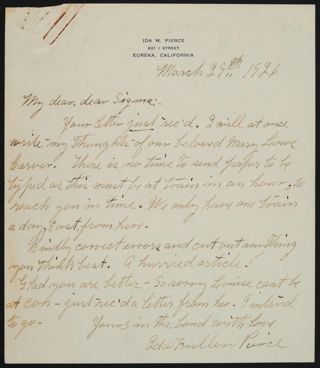 IDA M. PIERCE
621 I STREET
EUREKA, CALIFORNIA
March 25th 1926
My dear, dear Sigma:-
Your letter just rec'd. I will at once
write my thoughts of our beloved Mary Louise
Carver. There is no time to send paper to be
typed as this must be at train in an hour, to
reach you in time. We only have one train
a day, East, from here.
Kindly correct errors and cut out anything
you think best. A hurried article!
Glad you are better - So sorry Louise can't be
at con - just rec'd a letter from her. I intend
to go -
Yours in the bond with love
Ida Pierce